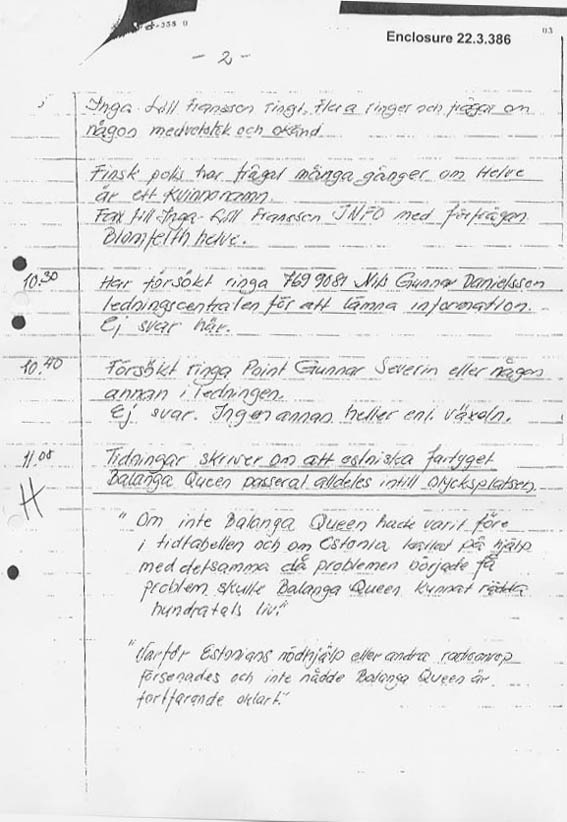 Enclosure 22.3.386
- 2 -
Inga-Lill Fransson ringt, flera ringer och frågar om
någon medvetslös och okänd.
Finsk polis har frågat många gånger om Helve
är ett kvinnonamn.
Fax till Inga-Lill Fransson INFO med förfrågan
Blomfeldt helve.
10.30 Har försökt ringa 769 9081 Nils Gunnar Danielsson
ledningscentralen för att lämna information.
Ej svar här.
10.40 Försökt ringa Point Gunnar Severin eller någon
annan i ledningen.
Ej svar. Ingen annan heller enl. växeln.
11.05 Tidningar skriver om att estniska fartyget
Balanga Queen passerat alldeles intill olycksplatsen.
H
"Om inte Balanga Queen hade varit före
i tidtabellen och om Estonia kallat på hjälp
med detsamma då problemen började få
problem skulle Balanga Queen kunnat rädda
hundratals liv."
"Varför Estonians nödhjälp eller andra radioanrop
försenades och inte nådde Balanga Queen är
fortfarande oklart."